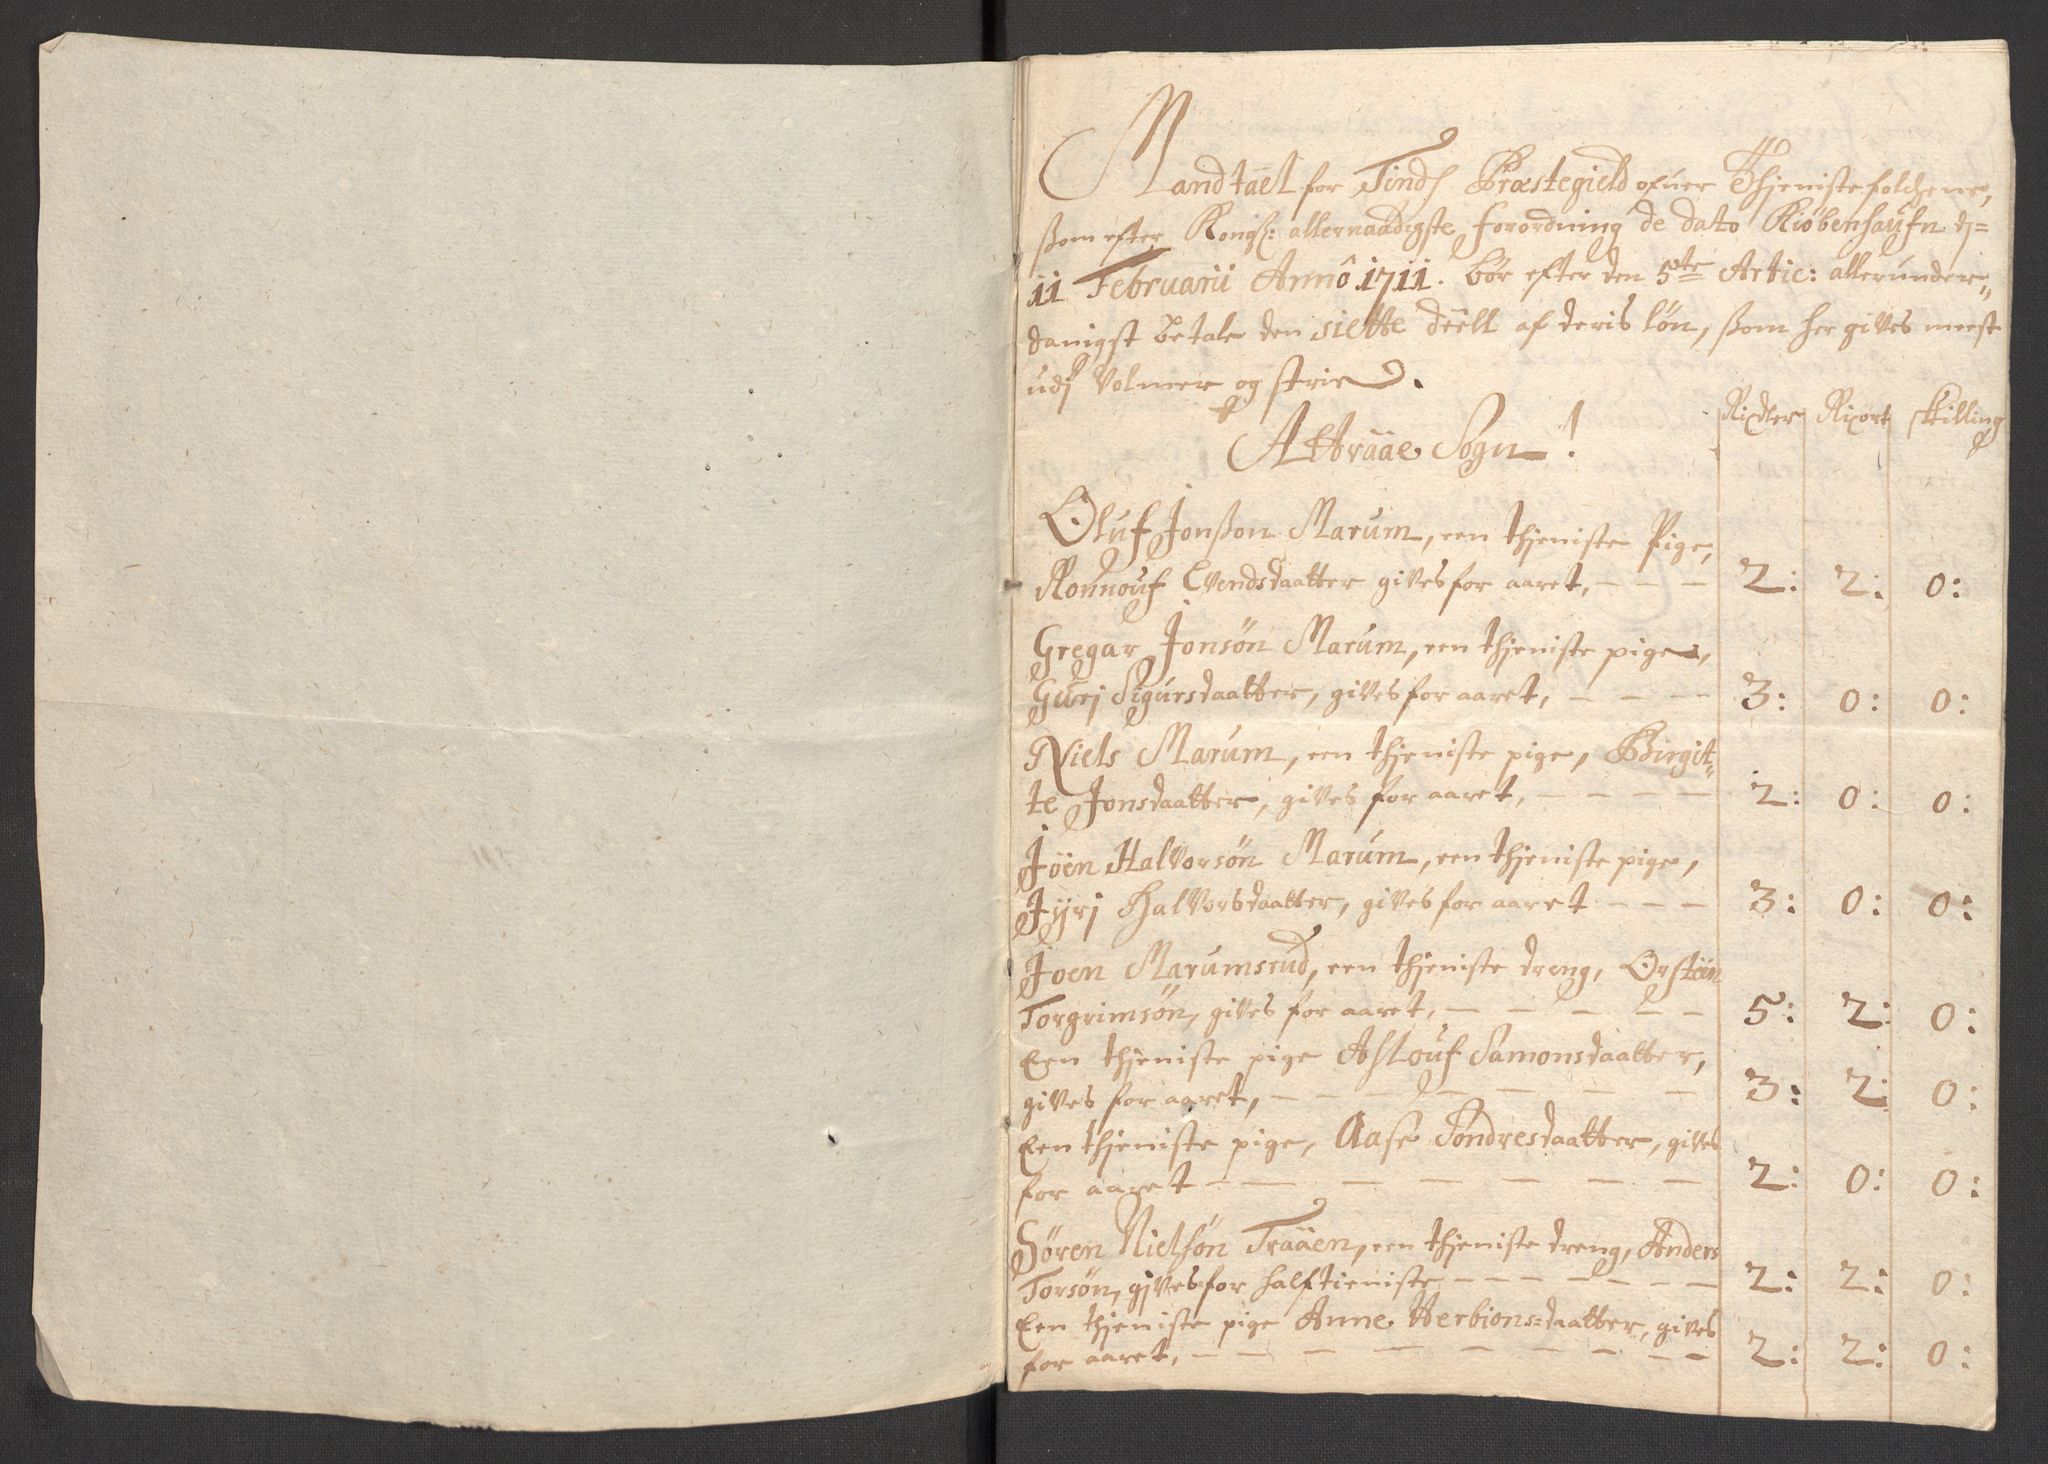 Mandtael for Tinds Præstegield ofuer Thjenistefolchene,
ßom efter Kongl: allernaadigste forordning de dato Kiöbenhaufn d:
11 Februarii Annô 1711. bör efter den 5te Artic: allerunder„
danigst betale den siette deell af deris lön, ßom her gives meest
udj Volmer og strie.
Rixdler Rixort skilling
Attraae Sogn!
Oluf Jonßon Marum, een thjeniste Pige,
Ronnouf Evendsdaatter gives for aaret, - - - 2: 2: 0:
Gregar Jonsön Marum, een thjeniste pige,
Gurj Sigursdaatter, gives for aaret, - - - - 3: 0: 0:
Niels Marum, een thjeniste pige, Birgit„
te Jonsdaatter, gives for aaret, - - - - - 2: 0: 0:
Joen Halvorsön Marum, een thjeniste pige,
Jyrj Halvorsdaatter, gives for aaret - - - 3: 0: 0:
Joen Marumsrud, een thjeniste dreng, Örsteen
Torgrimsön, gives for aaret, - - - - - 5: 2: 0:
Een thjeniste pige Aslouf Samonsdaatter,
gives for aaret, - - - - - - - - 3: 2: 0:
Een thjeniste pige, Aase Söndresdaatter, gives
for aaret - - - - - - - - 2: 0: 0:
Sören Nielsön Traaen, een thjeniste dreng, Anders
Torsön, gives for half tieniste - - - - - - - 2: 2: 0:
Een thjeniste pige Anne Herbions=daatter, gives
for aaret, - - - - - - - - - - 2: 2: 0: